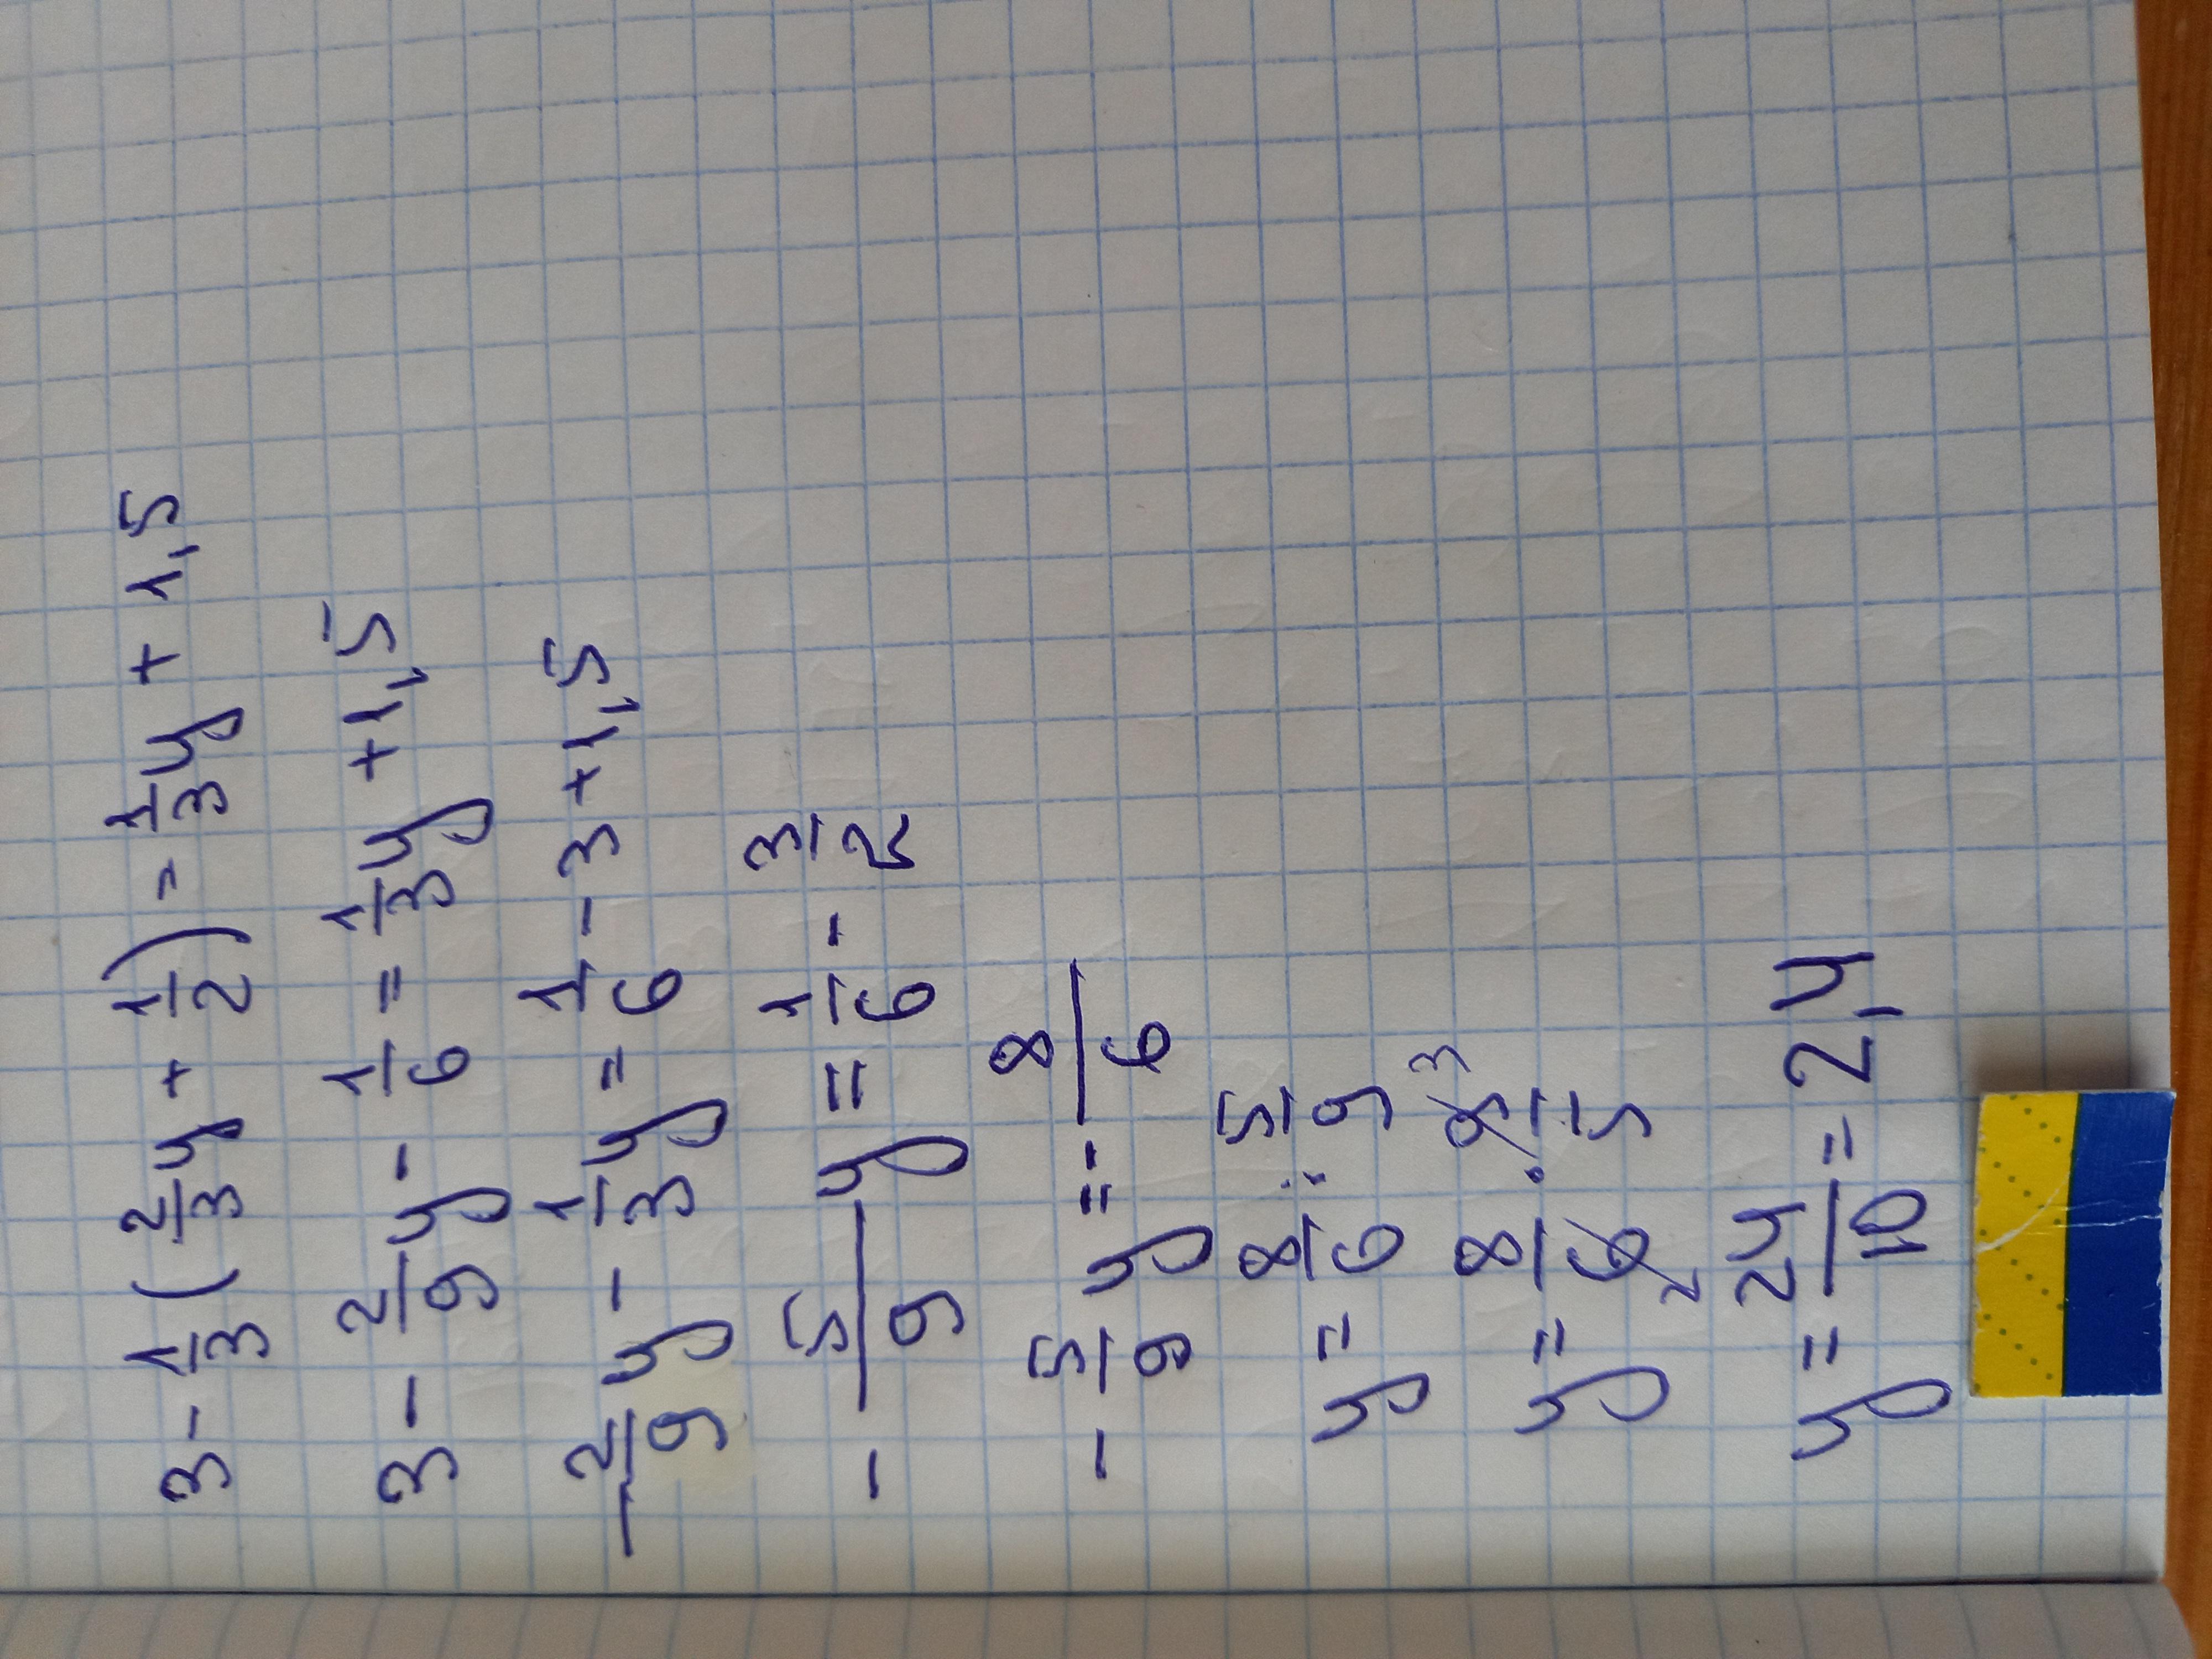 3 - 1/3 (2/3 y + 1/2) = 1/3 y + 1,5
3 - 2/9 y - 1/6 = 1/3 y + 1,5
- 2/9 y - 1/3 y = 1/6 - 3 + 1,5
- 5/9 y = 1/6 - 3/2
- 5/9 y = - 8/6
y = 8/6 : 5/9
y = 8/6 2 · 9/5 3
y = 24/10 = 2,4